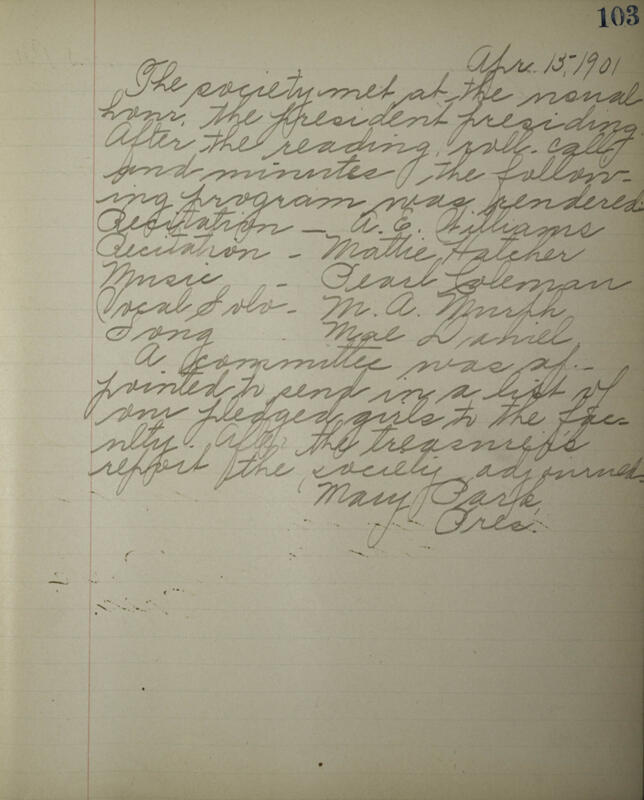 103
Apr. 15, 1901
The society met at the usual
hour, the president presiding
After the reading, roll-call
and minutes the follow-
ing program was rendered:
Recitation — A. E. Williams
Recitation - Mattie Hatcher
Music - Pearl Coleman
Vocal Solo - M. A. Murph
Song Mae Daniel
A committee was ap-
pointed to send in a list of
our pledged girls to the fac-
ulty. After the treasurer's
report the society adjourned.
Mary Park,
Pres.